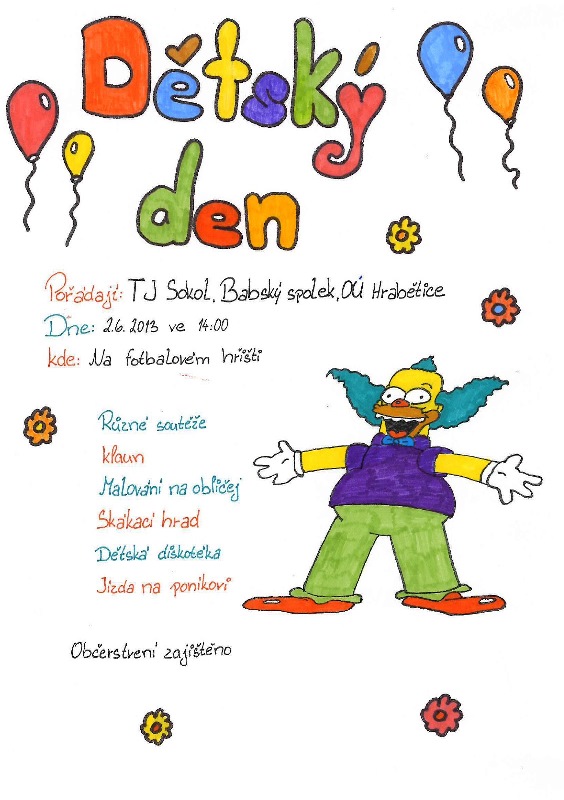 Dětský
den
Pořádají: TJ Sokol, Babský spolek, OÚ Hrabětice
Dne: 2.6. 2013 ve 14:00
kde: Na fotbalovém hřišti
Různé soutěže
klaun
Malování na obličej
Skákací hrad
Dětská diskotéka
Jízda na poníkovi
Občerstvení zajištěno